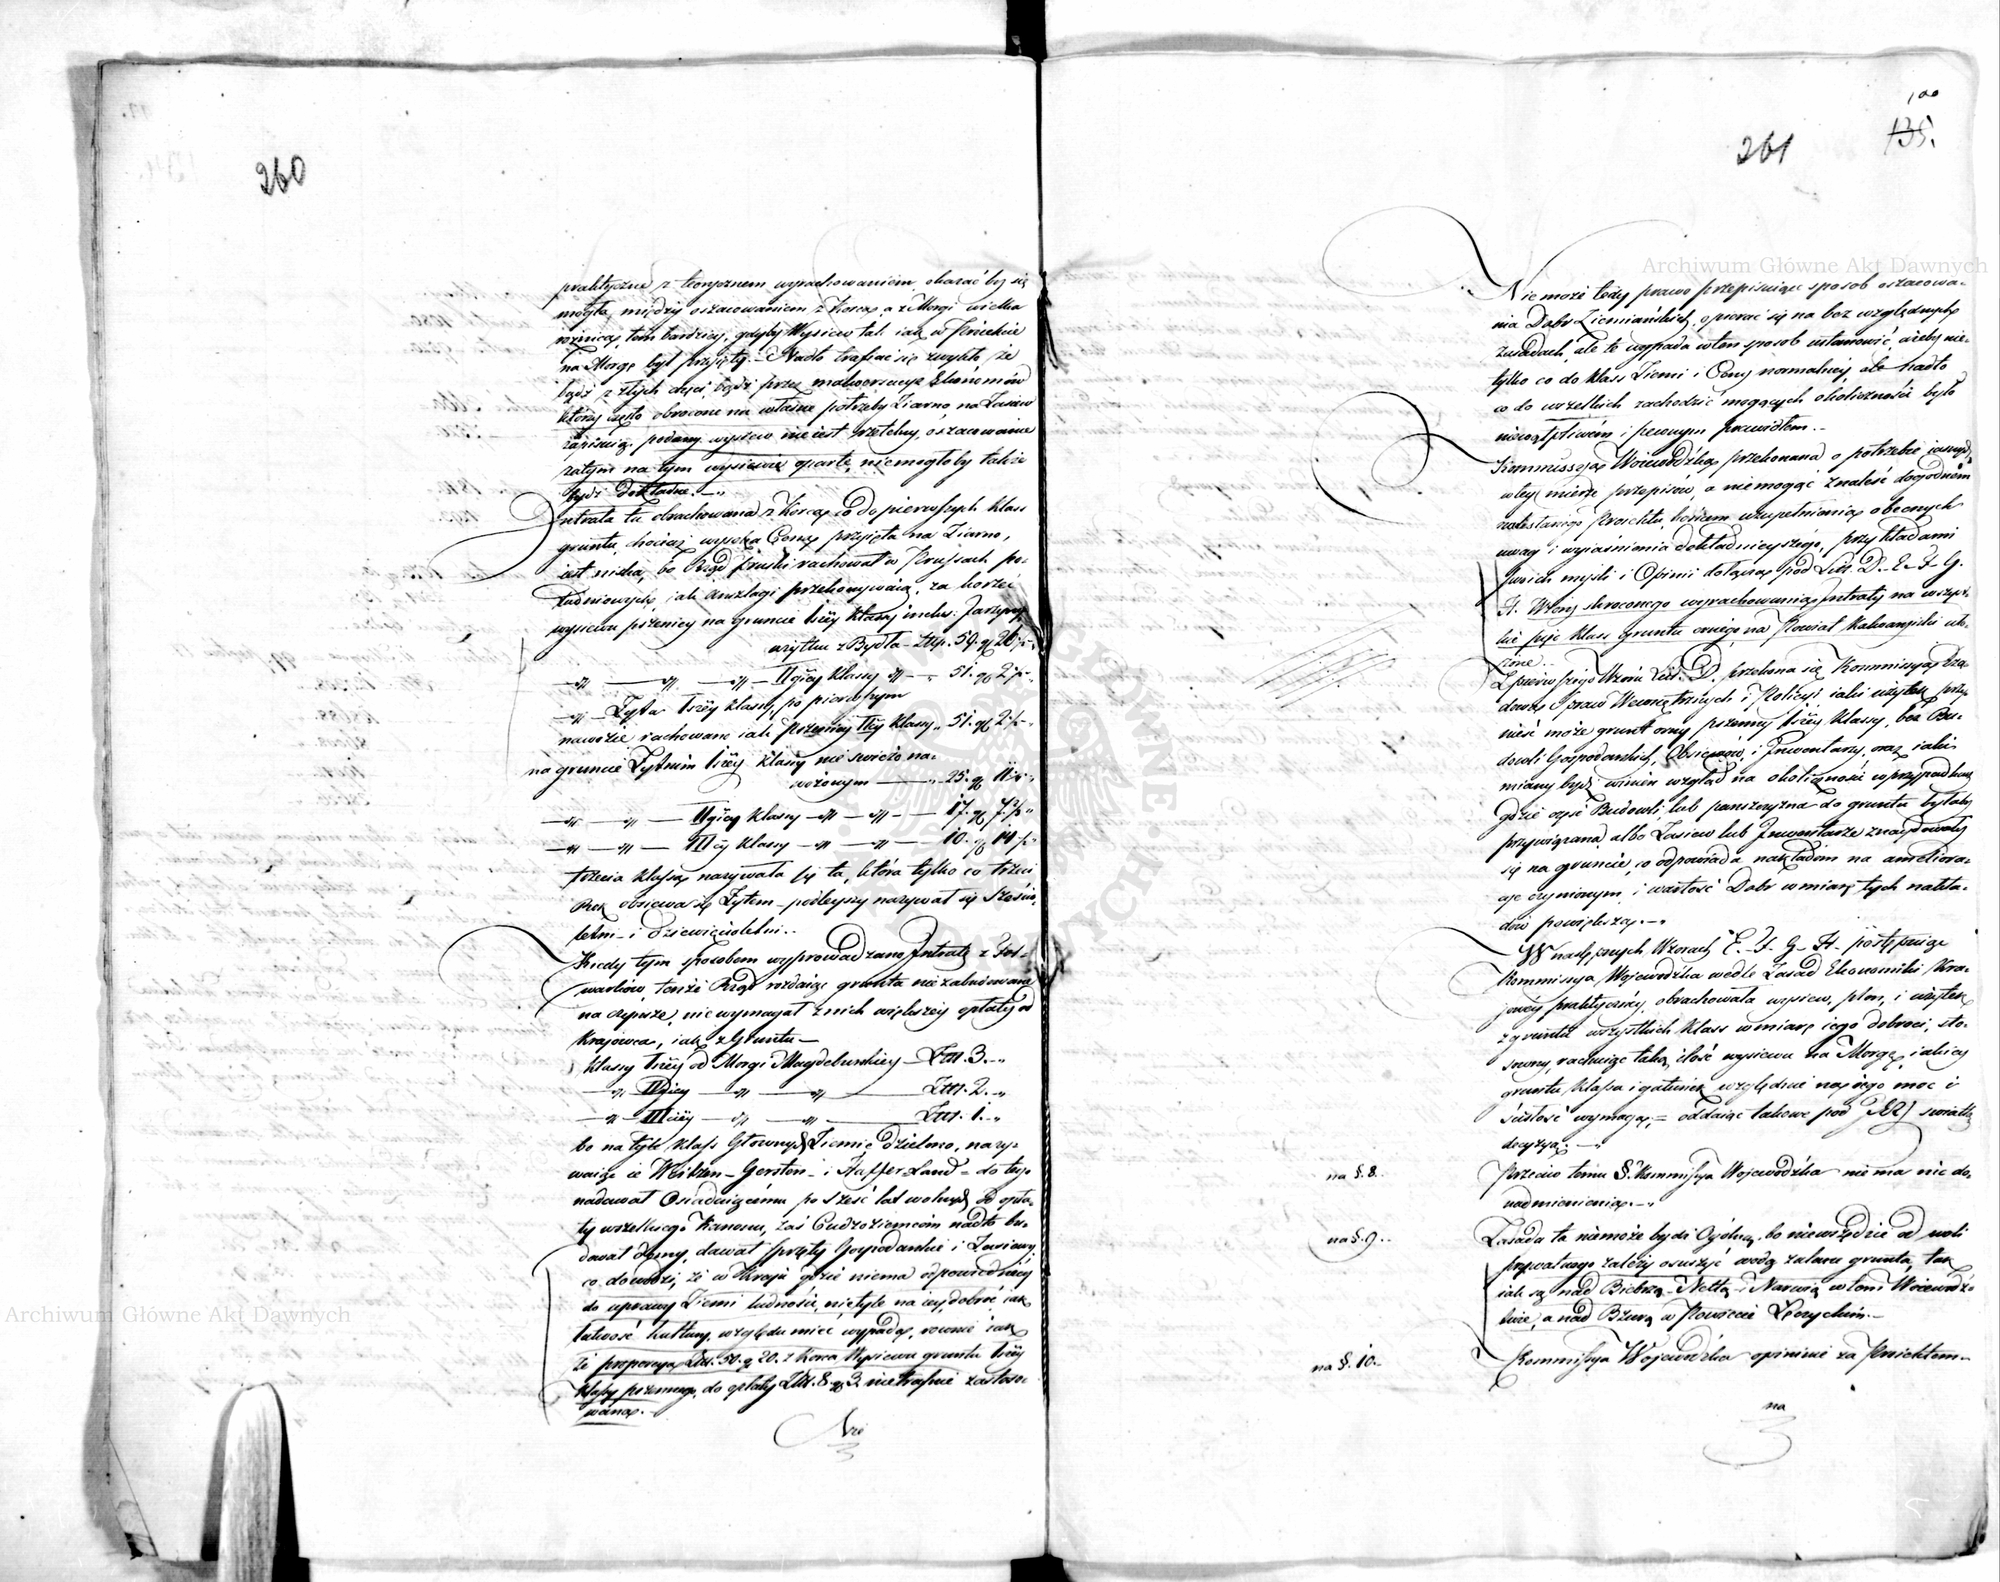 260
praktyczne z teorycznem wyrachowaniem, okazać by się
mogła, między oszacowaniem z Korca, a z Morgi wielka
różnica, tem bardziey, gdyby Wysiew tak iak w Proiekcie
na Morgę był przyjęty. Nadto trafiać się zwykło, że
bądź z złych chęci, bądź przez malwersacye Ekonomów
którzy często obrócone na własne potrzeby Ziarno, na Zasiew
zapisuią, podany wysiew nie iest rzetelny, oszacowanie
zatym na tym wysiewie oparte, niemogłoby także
bydź dokładne.
Intrata tu obrachowana z Korca, co do pierwszych klass
gruntu, chociaż wysoka Cena przyięta na Ziarno,
iest niska, bo Rząd Pruski rachował w Prusach po-
łudniowych, iak Anszlagi przekonywaią, za korzec
wysiewu pszenicy na gruncie Iszéy klassy inclus: Jarzyny
użytku z Bydła - Złtp. 54. gr 26
IIgiéy klassy - 51. gr 2
Żyta Iszéy klassy, po pierwszym
nawozie rachowane iak pszenicy IIéy klassy 51. gr 2
na gruncie Żytnim Iszéy klassy nie świeżo na-
wożonym 25. gr 11
IIgiéy klassy 17. gr 7
III éy klassy 10. gr 14
trzecia klassa nazywała się ta, która tylko co trzeci
Rok obsiewa się Żytem - podleyszy nazywał się Sześcio-
letni - i dziewięcioletni.
Kiedy tym sposobem wyprowadzano Intratę z Fol-
warków, tenże Rząd rozdaiąc grunta niezabudowane
na czynsze, nie wymagał z nich większéy opłaty od
Kraiowca, iak z Gruntu
klassy Iszéy od Morgi Magdeburskiey Złtt. 3.
IIgiey Złtt. 2.
IIIciéy Złtt. 1.
bo na tyle klass Głównych Ziemię dzielono, nazy-
waiąc ie Weitzen - Gersten - i Haffer Land - do tego
nadawał Osiadaiącemu po sześć lat wolnych od opła-
ty wszelkiego Kanonu, zaś Cudzoziemcom nadto bu-
dował domy, dawał sprzęty Gospodarskie i Zasiewy,
co dowodzi, że w Kraju gdzie niema odpowiedniéy
do uprawy Ziemi ludności, nietyle na iéy dobroć iak
łatwość kultury, względu mieć wypada, równie iak
że proporcya Złtt. 50. g 20. z Korca Wysiewu gruntu Iszéy
klassy pszennego, do opłaty Złtt. 8. gr 3. nie trafnie zastoso-
wana.
Nie
100
261
135.
Nie może tedy prawo przepisuiące sposób oszacowa-
nia Dóbr Ziemiańskich, opierać się na bez względnych
zasadach, ale te wypada w ten sposób ustanowić, ażeby nie-
tylko co do klass Ziemi i Ceny normalnéy, ale nadto
co do wszelkich zachodzić mogących okoliczności było
niewątpliwém i pewnym prawidłem.
Kommissya Woiewódzka przekonana o potrzebie iasnych
w téy mierze przepisów, a niemogąc znaleść dogodném
Proiektu, końcem uzupełnienia obecnych
uwag i wyiaśnienia dokładnieyszego, przykładami
swoich myśli i Opinii dołącza pod Litt. D. E. F. G.
H. Wzory skróconego wyrachowania Intraty na wszyst-
kie pięć klass gruntu ornego, na Powiat Kalwaryjski uło-
żone.
Z pierwszego Wzoru Litt. D. przekona się Kommissya Rzą-
dowa Spraw Wewnętrznych i Policyi iaki użytek przy-
nieść może grunt orny pszenny Iszéy klassy, bez Bu-
dowli Gospodarskich, Obsiewów, i Inwentarzy, oraz iaki
miany bydź winien wzgląd na okoliczność w przypadku,
gdzie część Budowli, lub pańszczyzna do gruntu byłaby
przywiązana, albo Zasiew lub Inwentarze znaydowały
się na gruncie, co odpowiada nakładom na ameliora-
cye czynionym, i wartość Dóbr w miarę tych nakła-
dów powiększa.
W następnych Wzorach E. F. G. H. postępuiąc
Kommissya Woiewódzka wedle Zasad Ekonomiki Kra-
jowéy praktycznéy, obrachowała wysiew, plon, i użytek
z gruntu wszystkich klass w miarę iego dobroci, sto-
sowny, rachuiąc taką ilość wysiewu na Morgę, iakiéy
gruntu klassa i gatunek względnie na iego moc i
ścisłość wymaga, = oddaiąc takowe pod JER światłą
decyzyą.
na §. 8. Przeciw temu §. Kommissya Woiewódzka nie ma nic do
nadmienienia.
na §. 9. Zasada ta niemoże bydź Ogólna, bo niewszędzie od woli
prywatnego zależy osuszyć wodą zalane grunta, tak
iak są nad Biebrzą - Nettą i Narwią w tem Woiewódz-
twie, a nad Bzurą w Powiecie Łęczyckim.
na §. 10. Kommissya Woiewódzka opiniuie za Proiektem
na
Archiwum Główne Akt Dawnych
Archiwum Główne Akt Dawnych